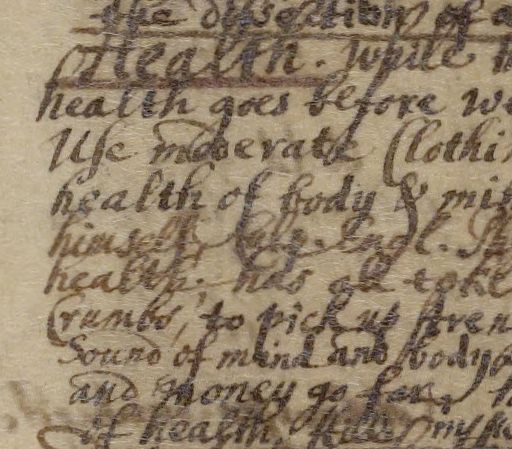 the dissection of a
Health. While
health goes before we
Use moderate Clothi
health of body & mi
himself,
health. has all toke
Crumbs, to pick up stren
Sound of mind and body
and money go far,
of health.